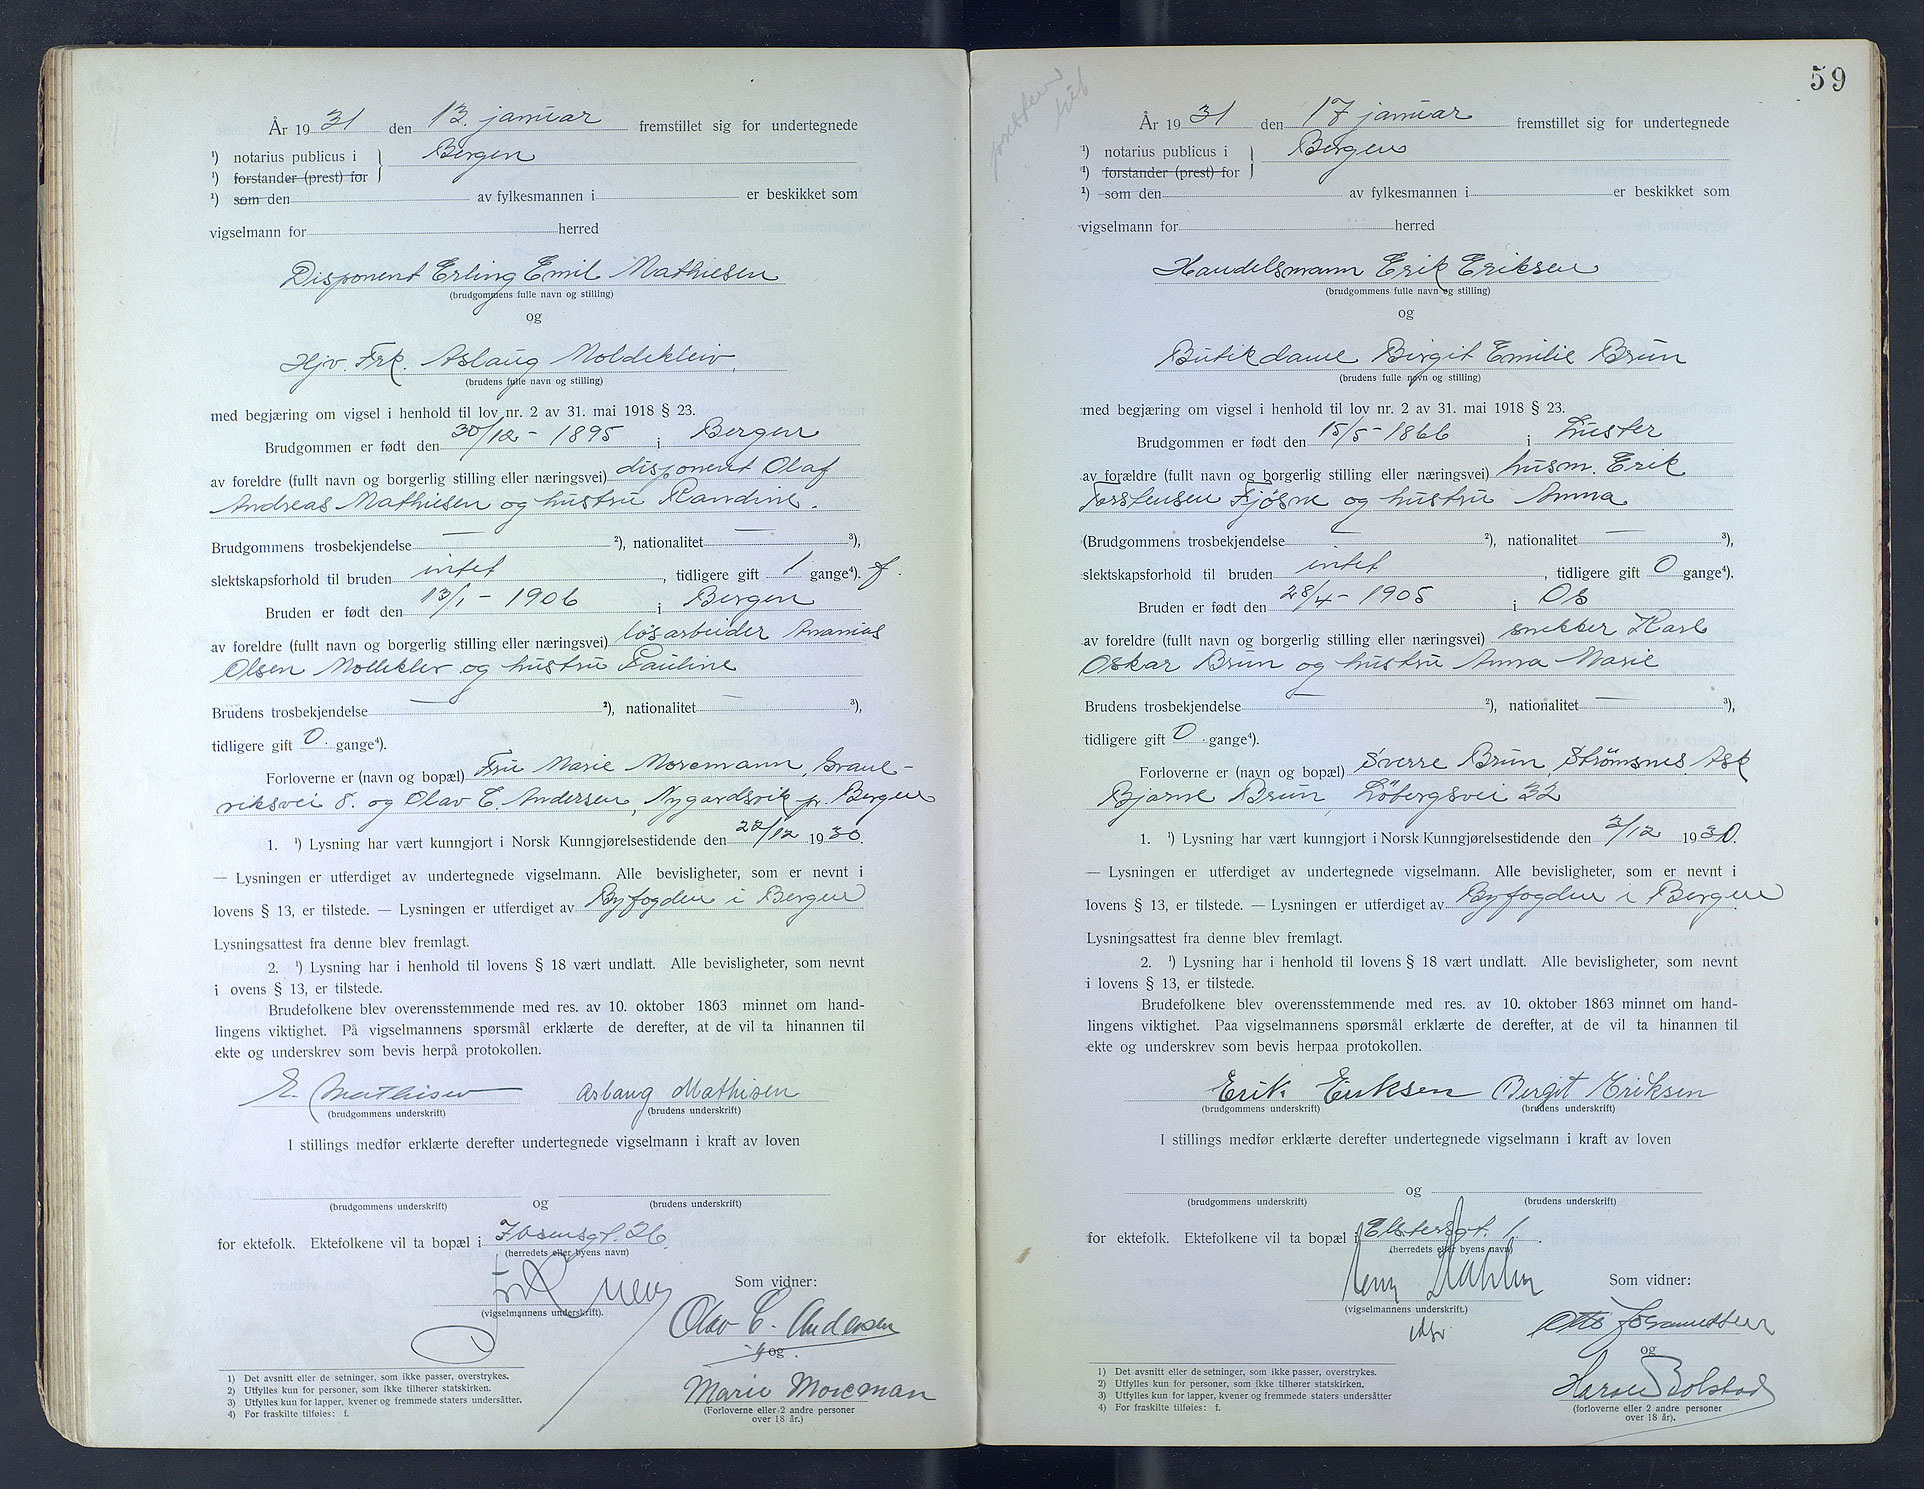 År 1931 den 13. januar fremstillet sig for undertegnede
¹) notarius publicus i } Bergen
¹) forstander (prest) for
¹) som den av fylkesmannen i er beskikket som
vigselmann for herred
Disponent Erling Emil Mathiesen
(brudgommens fulle navn og stilling)
og
Hjv. Frk. Aslaug Moldekleiv,
(brudens fulle navn og stilling)
med begjæring om vigsel i henhold til lov nr. 2 av 31. mai 1918 § 23.
Brudgommen er født den 30/12 - 1895 i Bergen
av foreldre (fullt navn og borgerlig stilling eller næringsvei) disponent Olaf
Andreas Mathiesen og hustru Randine.
Brudgommens trosbekjendelse — ²), nationalitet — ³),
slektskapsforhold til bruden intet, tidligere gift 1 gange⁴). f.
Bruden er født den 13/1 - 1906 i Bergen
av foreldre (fullt navn og borgerlig stilling eller næringsvei) løsarbeider Ananias
Olsen Molleklev og hustru Pauline
Brudens trosbekjendelse — ²), nationalitet — ³),
tidligere gift 0. gange⁴).
Forloverne er (navn og bopæl) Fru Marie Moremann,
8. og Olav C. Andersen, Nygardsvik pr. Bergen
1. ¹) Lysning har vært kunngjort i Norsk Kunngjørelsestidende den 22/12 1930.
— Lysningen er utferdiget av undertegnede vigselmann. Alle bevisligheter, som er nevnt i
lovens § 13, er tilstede. — Lysningen er utferdiget av Byfogden i Bergen
Lysningsattest fra denne blev fremlagt.
2. ¹) Lysning har i henhold til lovens § 18 vært undlatt. Alle bevisligheter, som nevnt
i ovens § 13, er tilstede.
Brudefolkene blev overensstemmende med res. av 10. oktober 1863 minnet om hand-
lingens viktighet. På vigselmannens spørsmål erklærte de derefter, at de vil ta hinannen til
ekte og underskrev som bevis herpå protokollen.
E. Mathisen Aslaug Mathisen
(brudgommens underskrift) (brudens underskrift)
I stillings medfør erklærte derefter undertegnede vigselmann i kraft av loven
og
(brudgommens underskrift) (brudens underskrift)
for ektefolk. Ektefolkene vil ta bopæl i Ibsensgt. 26.
(herredets eller byens navn)
Som vidner:
(vigselmannens underskrift).
Olav C. Andersen
og
Marie Moreman
(Forloverne eller 2 andre personer
over 18 år.)
1) Det avsnitt eller de setninger, som ikke passer, overstrykes.
2) Utfylles kun for personer, som ikke tilhører statskirken.
3) Utfylles kun for lapper, kvener og fremmede staters undersåtter.
4) For fraskilte tilføies: f.
59
År 1931 den 17 januar fremstillet sig for undertegnede
¹) notarius publicus i } Bergen
¹) forstander (prest) for
¹) som den av fylkesmannen i er beskikket som
vigselmann for herred
Handelsmann Erik Eriksen
(brudgommens fulle navn og stilling)
og
Butikdame Birgit Emilie Brun
(brudens fulle navn og stilling)
med begjæring om vigsel i henhold til lov nr. 2 av 31. mai 1918 § 23.
Brudgommen er født den 15/5 - 1866 i Luster
av forældre (fullt navn og borgerlig stilling eller næringsvei) husm. Erik
Torstensen Fjøsne og hustru Anna
(Brudgommens trosbekjendelse — ²), nationalitet — ³),
slektskapsforhold til bruden intet, tidligere gift 0 gange⁴).
Bruden er født den 28/4 - 1905 i Os
av foreldre (fullt navn og borgerlig stilling eller næringsvei) snekker Karl
Oskar Brun og hustru Anna Marie
Brudens trosbekjendelse — ²), nationalitet — ³),
tidligere gift 0 gange⁴).
Forloverne er (navn og bopæl) Sverre Brun, Strømsnes, Ask
Bjarne Brun, Løbergsvei 32
1. ¹) Lysning har vært kunngjort i Norsk Kunngjørelsestidende den 2/12 1930.
— Lysningen er utferdiget av undertegnede vigselmann. Alle bevisligheter, som er nevnt i
lovens § 13, er tilstede. — Lysningen er utferdiget av Byfogden i Bergen
Lysningsattest fra denne blev fremlagt.
2. ¹) Lysning har i henhold til lovens § 18 vært undlatt. Alle bevisligheter, som nevnt
i lovens § 13, er tilstede.
Brudefolkene blev overensstemmende med res. av 10. oktober 1863 minnet om hand-
lingens viktighet. Paa vigselmannens spørsmål erklærte de derefter, at de vil ta hinannen til
ekte og underskrev som bevis herpaa protokollen.
Erik Eriksen Bergit Eriksen
(brudgommens underskrift) (brudens underskrift)
I stillings medfør erklærte derefter undertegnede vigselmann i kraft av loven
og
(brudgommens underskrift) (brudens underskrift)
for ektefolk. Ektefolkene vil ta bopæl i Elstersgt. 1.
(herredets eller byens navn)
Som vidner:
(vigselmannens underskrift.)
Otto
og
Harald Bolstad
(forloverne eller 2 andre personer
over 18 år).
1) Det avsnitt eller de setninger, som ikke passer, overstrykes.
2) Utfylles kun for personer, som ikke tilhører statskirken.
3) Utfylles kun for lapper, kvener og fremmede staters undersåtter
4) For fraskilte tilføies: f.